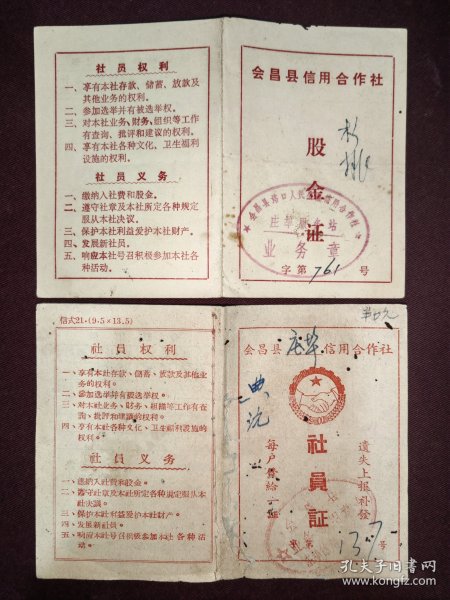 社员权利
一、享有本社存款、储蓄、放款及
其他业务的权利。
二、参加选举并有被选举权。
三、对本社业务、财务、组织等工作
有查询、批评和建议的权利。
四、享有本社各种文化、卫生福利
设施的权利。
社员义务
一、缴纳入社费和股金。
二、遵守社章及本社所定各种规定
服从本社决议。
三、保护本社利益爱护本社财产。
四、发展新社员。
五、响应本社号召积极参加本社各
种活动。
会昌县信用合作社
股金证
业务章
字第761号
信式21·(9.5×13.5)
社员权利
一、享有本社存款、儲蓄、放款及其他业
务的权利。
二、参加选举并有被选举权。
三、对本社业务、财务、組織等工作有查
詢、批評和建議的权利。
四、享有本社各种文化、卫生福利設施的
权利。
社员义务
一、缴納入社費和股金。
二、遵守社章及本社所定各种規定服从本
社决議。
三、保护本社利益爱护本社財产。
四、发展新社員。
五、响应本社号召积极参加本社各种活
动。
会昌县
信用合作社
社員証
遗失上报补發
每户發給一証
字第137号
孔夫子旧书网